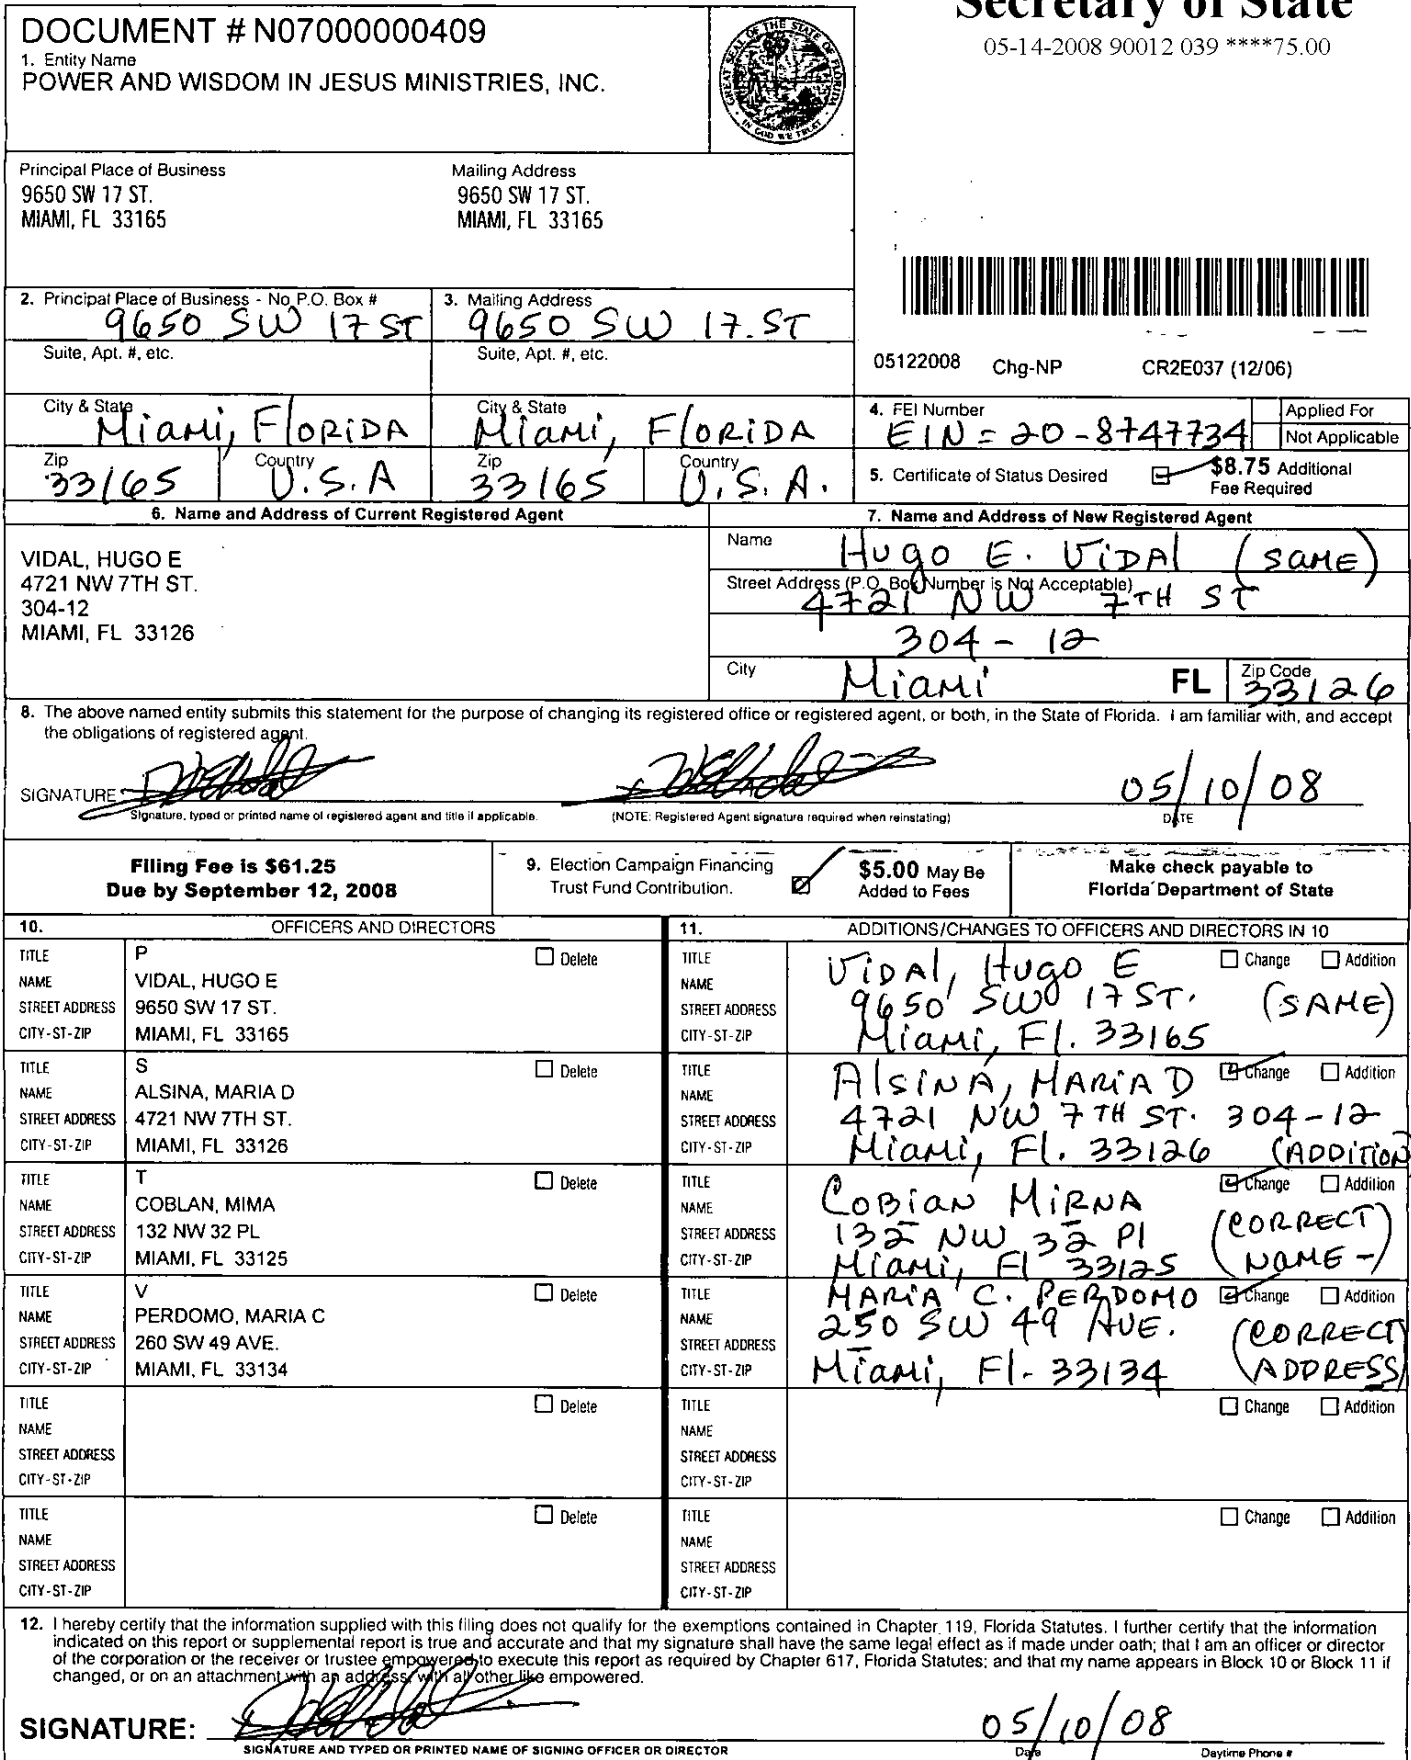 Secretary of State
05-14-2008 90012 039 ****75.00
DOCUMENT # N07000000409
1. Entity Name
POWER AND WISDOM IN JESUS MINISTRIES, INC.
GREAT SEAL OF THE STATE OF FLORIDA
IN GOD WE TRUST
Principal Place of Business
9650 SW 17 ST.
MIAMI, FL 33165
Mailing Address
9650 SW 17 ST.
MIAMI, FL 33165
2. Principal Place of Business - No P.O. Box #
9650 SW 17 ST
Suite, Apt. #, etc.
City & State
Miami, Florida
Zip
33165
Country
U.S.A
3. Mailing Address
9650 SW 17. ST
Suite, Apt. #, etc.
City & State
Miami, Florida
Zip
33165
Country
U.S.A.
05122008 Chg-NP CR2E037 (12/06)
4. FEI Number
EIN = 20-8747734
Applied For
Not Applicable
5. Certificate of Status Desired
$8.75 Additional
Fee Required
6. Name and Address of Current Registered Agent
VIDAL, HUGO E
4721 NW 7TH ST.
304-12
MIAMI, FL 33126
7. Name and Address of New Registered Agent
Name
Hugo E. Vidal (same)
Street Address (P.O. Box Number is Not Acceptable)
4721 NW 7TH ST
304-12
City
Miami
FL
Zip Code
33126
8. The above named entity submits this statement for the purpose of changing its registered office or registered agent, or both, in the State of Florida. I am familiar with, and accept
the obligations of registered agent.
SIGNATURE
05/10/08
Signature, typed or printed name of registered agent and title if applicable.
(NOTE: Registered Agent signature required when reinstating)
DATE
Filing Fee is $61.25
Due by September 12, 2008
9. Election Campaign Financing
Trust Fund Contribution.
$5.00 May Be
Added to Fees
Make check payable to
Florida Department of State
10. OFFICERS AND DIRECTORS
TITLE P Delete
NAME VIDAL, HUGO E
STREET ADDRESS 9650 SW 17 ST.
CITY-ST-ZIP MIAMI, FL 33165
TITLE S Delete
NAME ALSINA, MARIA D
STREET ADDRESS 4721 NW 7TH ST.
CITY-ST-ZIP MIAMI, FL 33126
TITLE T Delete
NAME COBLAN, MIMA
STREET ADDRESS 132 NW 32 PL
CITY-ST-ZIP MIAMI, FL 33125
TITLE V Delete
NAME PERDOMO, MARIA C
STREET ADDRESS 260 SW 49 AVE.
CITY-ST-ZIP MIAMI, FL 33134
TITLE Delete
NAME
STREET ADDRESS
CITY-ST-ZIP
TITLE Delete
NAME
STREET ADDRESS
CITY-ST-ZIP
11. ADDITIONS/CHANGES TO OFFICERS AND DIRECTORS IN 10
TITLE Vidal, Hugo E Change Addition
NAME
STREET ADDRESS 9650 SW 17 ST. (SAME)
CITY-ST-ZIP Miami, Fl. 33165
TITLE Alsina, Maria D Change Addition
NAME
STREET ADDRESS 4721 NW 7TH ST. 304-12
CITY-ST-ZIP Miami, Fl. 33126 (ADDITION
TITLE Cobian Mirna Change Addition
NAME
STREET ADDRESS 132 NW 32 Pl (CORRECT
CITY-ST-ZIP Miami, Fl 33125 NAME-)
TITLE Maria C. Perdomo Change Addition
NAME
STREET ADDRESS 250 SW 49 AVE. (CORRECT
CITY-ST-ZIP Miami, Fl. 33134 ADDRESS)
TITLE Change Addition
NAME
STREET ADDRESS
CITY-ST-ZIP
TITLE Change Addition
NAME
STREET ADDRESS
CITY-ST-ZIP
12. I hereby certify that the information supplied with this filing does not qualify for the exemptions contained in Chapter 119, Florida Statutes. I further certify that the information
indicated on this report or supplemental report is true and accurate and that my signature shall have the same legal effect as if made under oath; that I am an officer or director
of the corporation or the receiver or trustee empowered to execute this report as required by Chapter 617, Florida Statutes; and that my name appears in Block 10 or Block 11 if
changed, or on an attachment with an address, with all other like empowered.
SIGNATURE:
05/10/08
SIGNATURE AND TYPED OR PRINTED NAME OF SIGNING OFFICER OR DIRECTOR
Date
Daytime Phone #